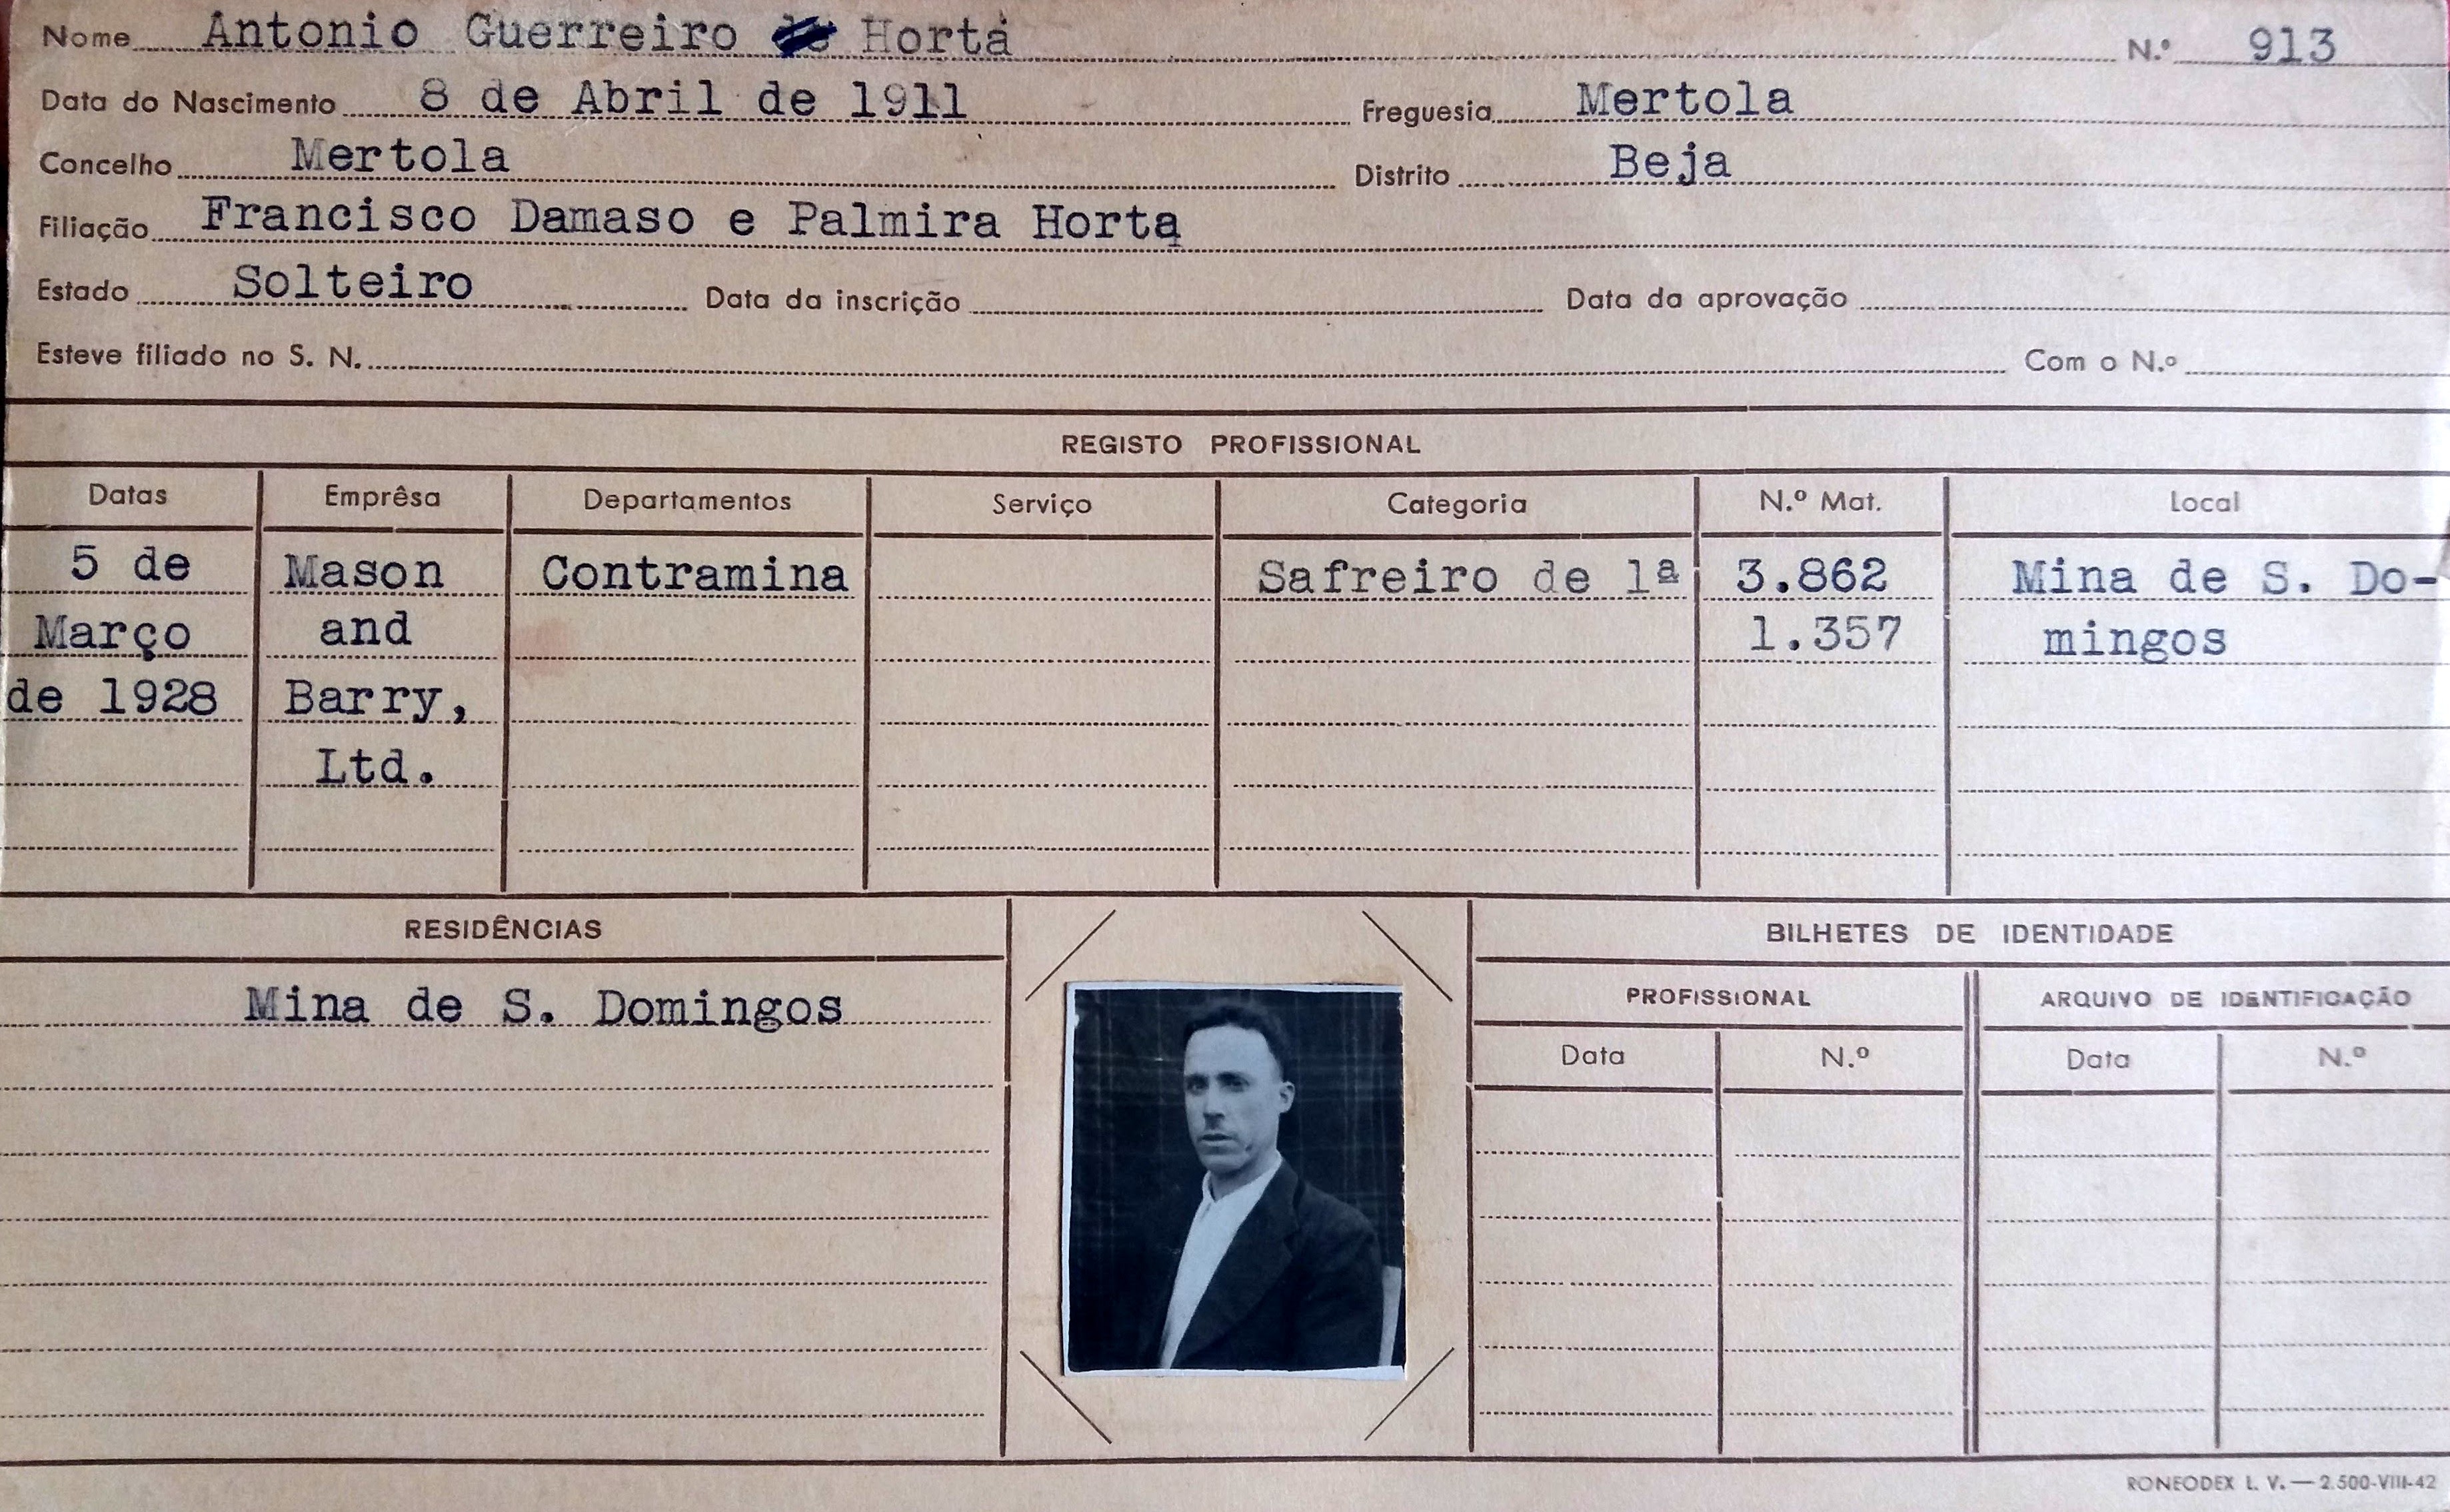 Nome Antonio Guerreiro de Horta N.º 913
Data do Nascimento 8 de Abril de 1911 Freguesia Mertola
Concelho Mertola Distrito Beja
Filiação Francisco Damaso e Palmira Horta
Estado Solteiro Data da inscrição Data da aprovação
Esteve filiado no S. N. Com o N.º
REGISTO PROFISSIONAL
Datas Emprêsa Departamentos Serviço Categoria N.º Mat. Local
5 de Mason Contramina Safreiro de 1ª 3.862 Mina de S. Do-
Março and 1.357 mingos
de 1928 Barry,
Ltd.
RESIDÊNCIAS
Mina de S. Domingos
BILHETES DE IDENTIDADE
PROFISSIONAL ARQUIVO DE IDENTIFICAÇÃO
Data N.º Data N.º
RONEODEX L. V. — 2.500-VIII-42